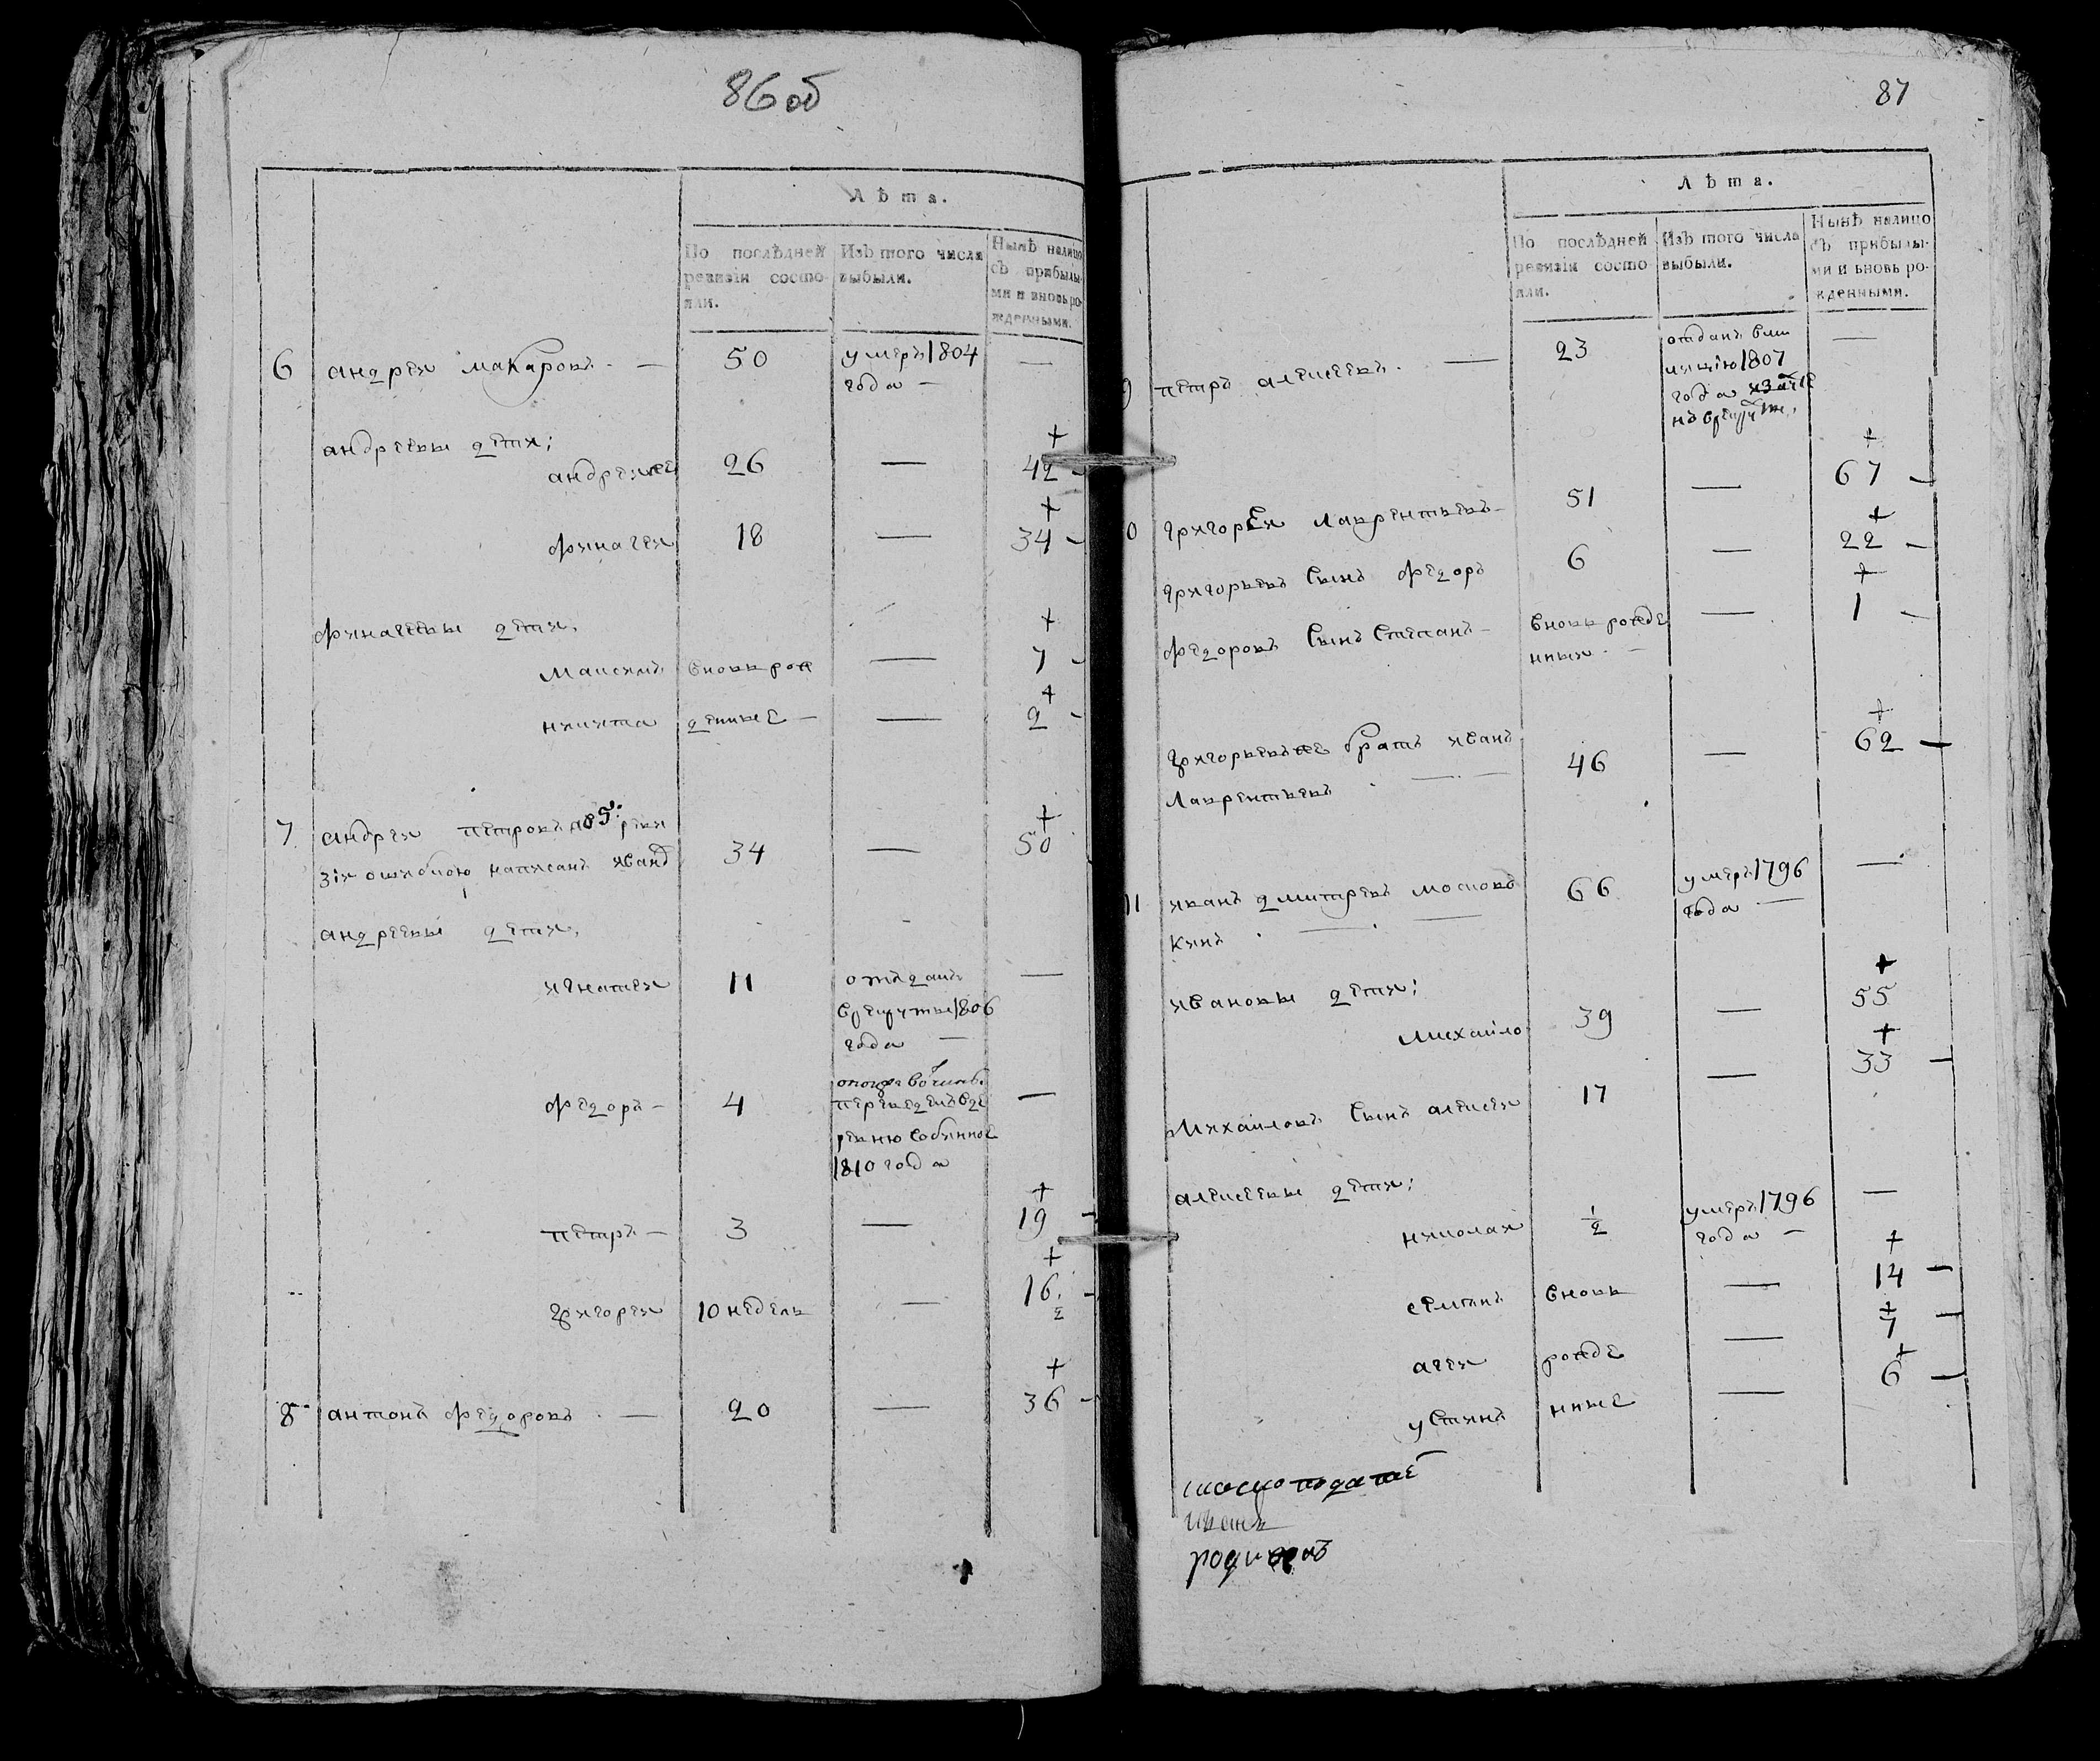 86 об
Лѣта.
По послѣдней ревизіи состояли.
Изъ того числа выбыли.
Нынѣ налицо съ прибылыми и вновь рожденными.
6 андреи макаровъ — 50 умеръ 1804 —
года —
андреевы дети;
+
андреи же 26 — 42 —
+
финагеи 18 — 34 —
финагеевы дети,
+
максимъ вновь рож — 7 —
+
никита денные — — 2 —
+
7 андреи петровъ по 5й: реви 34 — 50
зіи ошибкою написанъ иванъ
андреевы дети,
игнатеи 11 отъданъ —
в рекруты 1806
года —
федоръ — 4 —
переведенъ в де
ревню
1810 года
+
петръ — 3 — 19 —
+
григореи 10 недель — 16 1/2 —
+
8 антонъ федоровъ — 20 — 36 —
87
Лѣта.
По послѣдней ревизіи состояли.
Изъ того числа выбыли.
Нынѣ налицо съ прибылыми и вновь рожденными.
9 петръ алексеевъ — 23 отданъ в ми —
лицію 1807
года
+
0 григореи лаврентьевъ — 51 — 67 —
+
григорьевъ сынъ федоръ 6 — 22 —
+
федоровъ сынъ степанъ — вновь рожде — 1 —
нныи —
+
григорьевъ же братъ иванъ 46 — 62 —
лаврентьевъ —
11 иванъ дмитревъ московъ 66 умеръ 1796 —
кинъ — года —
ивановы дети;
+
михаило 39 — 55
+
михаиловъ сынъ алексеи 17 — 33 —
алексеевы дети;
николаи 1/2 умеръ 1796 —
года —
+
семенъ вновь — 14 —
+
агеи рожде — 7 —
+
устинъ нные — 6 —
иванъ
родионовъ